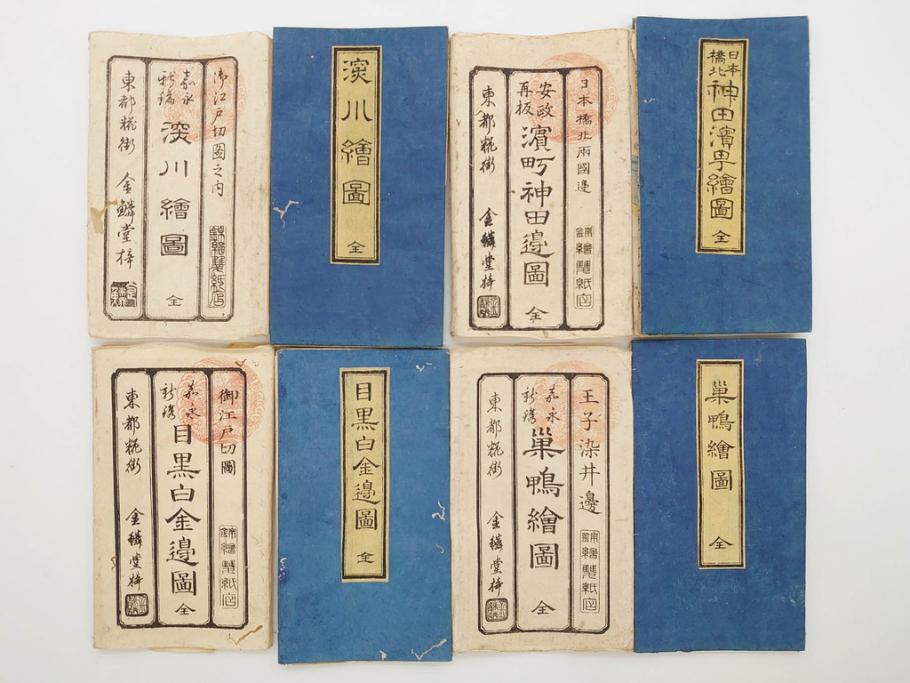 御江戸切圖之内
嘉永
新鐫
深川繪圖 全
東都糀街 金鱗堂梓
深川繪圖 全
日本橋北兩國邊
安政
再板
濱町神田邊圖 全
東都糀街 金鱗堂梓
日本
橋北
神田濱甼繪圖 全
御江戸切圖
嘉永
新鐫
目黒白金邉圖 全
東都糀街 金鱗堂梓
目黒白金邉圖 全
王子染井邊
嘉永
新鐫
巢鴨繪圖 全
東都糀街 金鱗堂梓
巢鴨繪圖 全